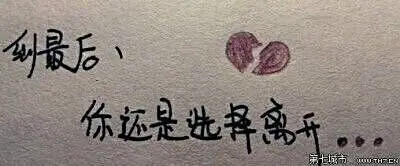 到最后、
你还是选择离开...
第七城市 WWW.TH7.CN